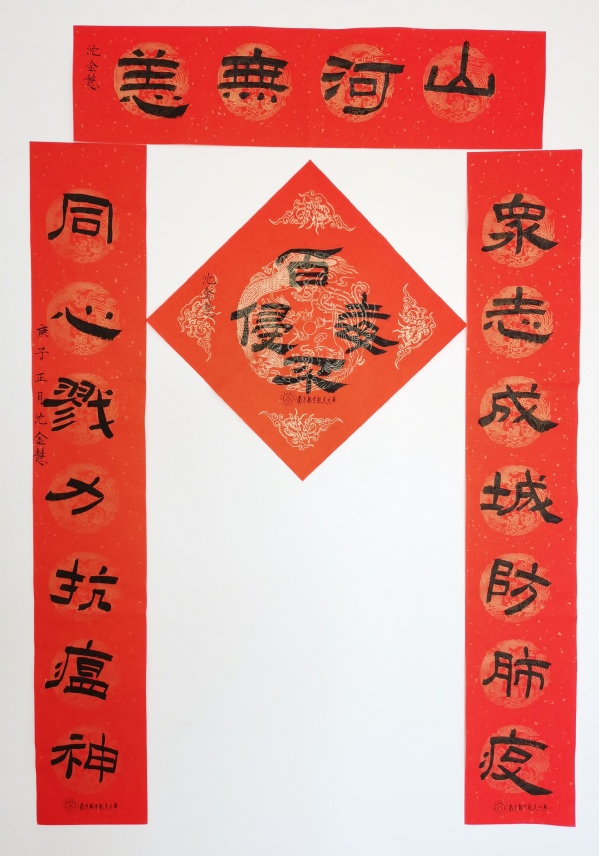 山河無恙
沈金慧
衆志成城防肺疫
南京航空航天大学
同心戮力抗瘟神
庚子正月沈金慧
南京航空航天大学
百毒不侵
南京航空航天大学